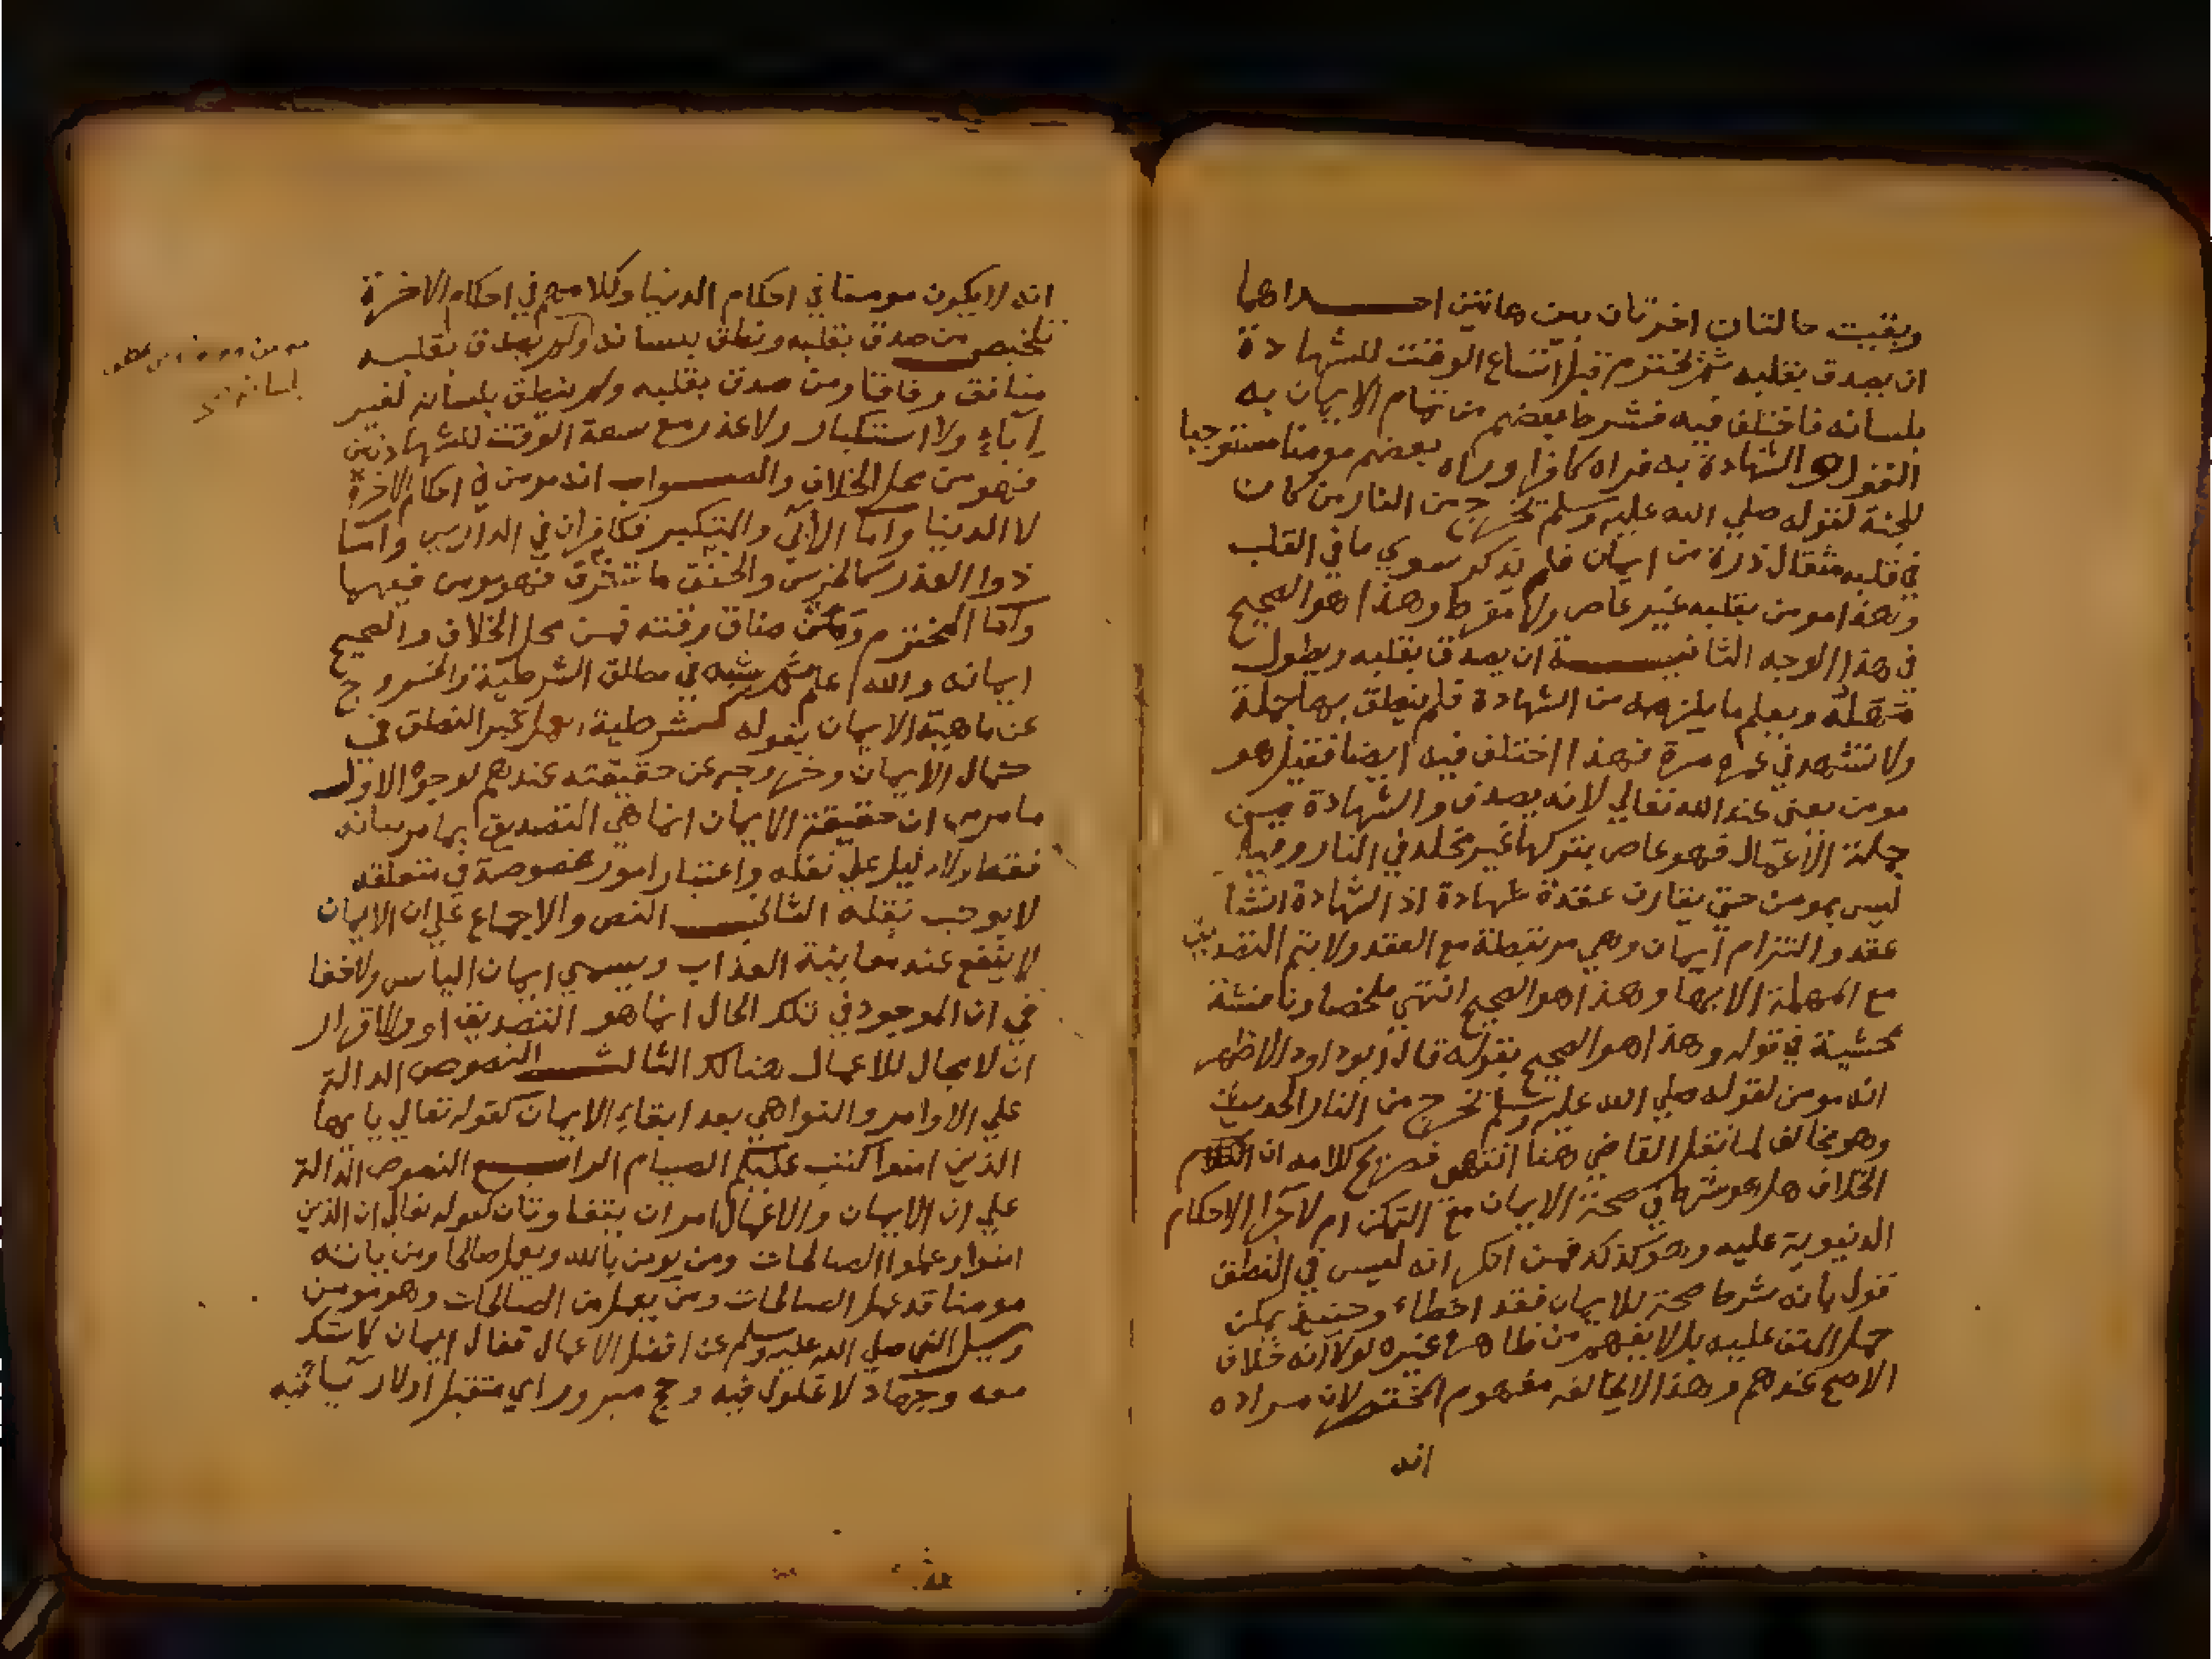 وبقيت حالتان اخرتان بين هاتين احداهما
ان يصدق بقلبه ثم يخترم قبل اتساع الوقت للشهادة
بلسانه فاختلف فيه فشرط بعضهم من تمام الايمان به
القول والشهادة به فراه كافرا وراه بعضهم مومنا مستوجبا
للجنة لقوله صلي الله عليه وسلم يخرج من النار من كان
في قلبه مثقال ذرة من ايمان فلم يذكر سوي ما في القلب
وهذا مومن بقلبه غير عاص ولا مفرط وهذا هو الصحيح
في هذا الوجه الثانية ان يصدق بقلبه ويطول
مهله ويعلم ما يلزمه من الشهادة فلم ينطق بها جملة
ولا تشهد في عمره مرة فهذا اختلف فيه ايضا فقيل هو
مومن يعني عند الله تعالي لانه يصدق والشهادة من
جملة الاعمال فهو عاص بتركها غير مخلد في النار وقيل
ليس بمومن حتي يقارن عقده شهادة اذ الشهادة انشا
عقد والتزام ايمان وهي مرتبطة مع العقد ولا يتم التصديق
مع المهلة الا بها وهذا هو الصحيح انتهي ملخصا ونا منشة
محشية في قوله وهذا هو الصحيح بقوله قال ابو داود الاظهر
انه مومن لقوله صلي الله عليه وسلم يخرج من النار الحديث
وهو مخالف لما نقل القاضي هنا انتهي فصريح كلامه ان
الخلاف هل هو شرط في صحة الايمان مع التمكن ام لاجرا الاحكام
الدنيوية عليه وهو كذلك فمن انكر انه ليس في النطق
قول بانه شرط صحة للايمان فقد اخطاء وحينئذ يمكن
حمل المتن عليه بل لا يفهم من ظاهره غيره لولا انه خلاف
الاصح عندهم وهذا لا يخالفه مفهوم المختصر لان مراده
انه
انه لا يكون مومنا في احكام الدنيا وكلامهم في احكام الاخرة
تلخيص من صدق بقلبه ونطق بلسانه ولم يصدق بقلبه
منافق وفاقا ومن صدق بقلبه ولم ينطق بلسانه لغير
اباء ولا استكبار ولا عذر مع سعة الوقت للشهادتين
فهو من محل الخلاف والصواب انه مومن في احكام الاخرة
لا الدنيا واما الابي والمتكبر فكافران في الدارين واما
ذوا العذر كالخرس والخنق فهو مومن فيهما
واما المخترم ومن ضاق وقته فمن محل الخلاف والصحيح
ايمانه والله اعلم ثم شبه في مطلق الشرطية والخروج
عن ماهية الايمان بقوله كشرطية عمل غير النطق في
كمال الايمان وخروجه عن حقيقته عندهم لوجوه الاول
ما مر من ان حقيقة الايمان انما هي التصديق بما مر بيانه
فقط ولا دليل علي نقله واعتبار امور مخصوصة في متعلقه
لا يوجب نقله الثاني النص والاجماع علي ان الايمان
لا ينفع عند معاينة العذاب ويسمي ايمان الياس ولا خفا
في ان الموجود في تلك الحال انما هو التصديق او والاقرار
ان لا مجال للاعمال هنالك الثالث النصوص الدالة
علي الاوامر والنواهي بعد ابقاء الايمان كقوله تعالي يا يها
الذين امنوا كتب عليكم الصيام الرابع النصوص الدالة
علي ان الايمان والاعمال امران يتفاوتان كقوله تعالي ان الذين
امنوا وعملوا الصالحات ومن يومن بالله ويعمل صالحا ومن ياته
مومنا قد عمل الصالحات ومن يعمل من الصالحات وهو مومن
وسيل النبي صلي الله عليه وسلم عن افضل الاعمال فقال ايمان لا شك
معه وجهاد لا غلول فيه وحج مبرور اي متقبل